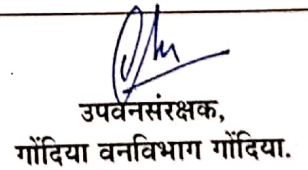 उपवनसंरक्षक,
गोंदिया वनविभाग गोंदिया.